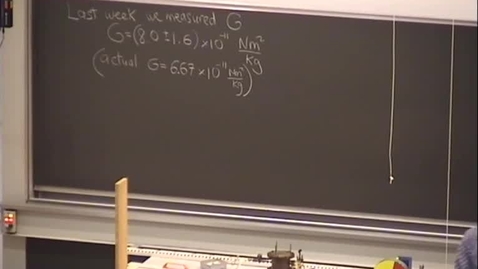 Last week we measured G
G=(8.0±1.6)×10⁻¹¹ Nm²/kg
(actual G=6.67×10⁻¹¹ Nm²/kg)